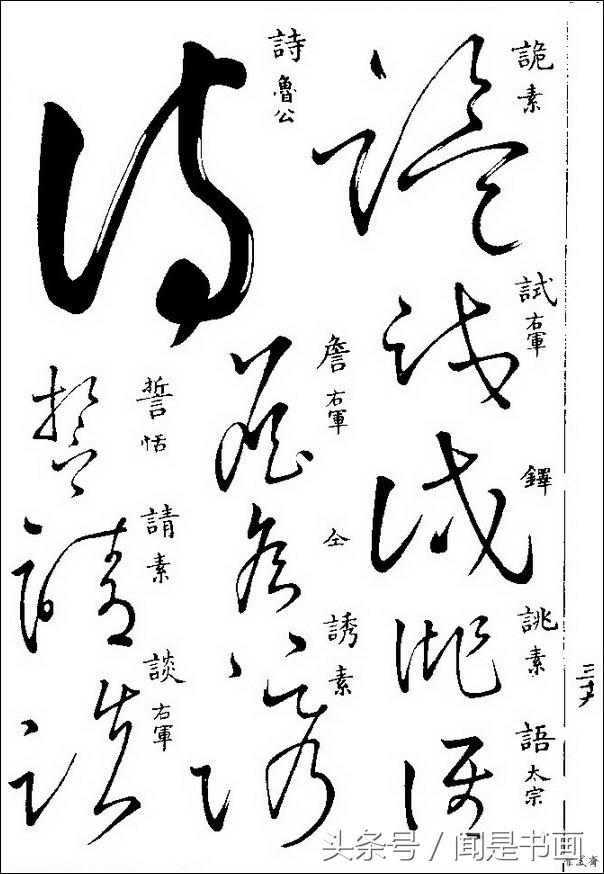 詭 素
試 右軍
鐸
誂 素
語 太宗
詩 魯公
詹 右軍
仝
誘 素
誓 恬
請 素
談 右軍
头条号 / 闻是书画